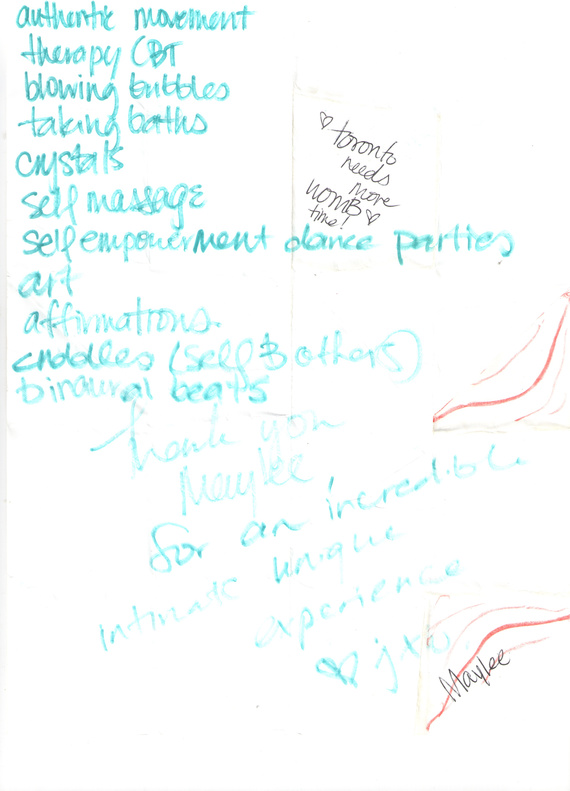 authentic movement
therapy CBT
blowing bubbles
taking baths
crystals
self massage
self empowerment dance parties
art
affirmations.
cuddles (self & others)
binaural beats
♡ toronto
needs
more
WOMB ♡
time!
thank you
Maylee
for an incredible
intimate unique
experience
♡ jxo
Maylee